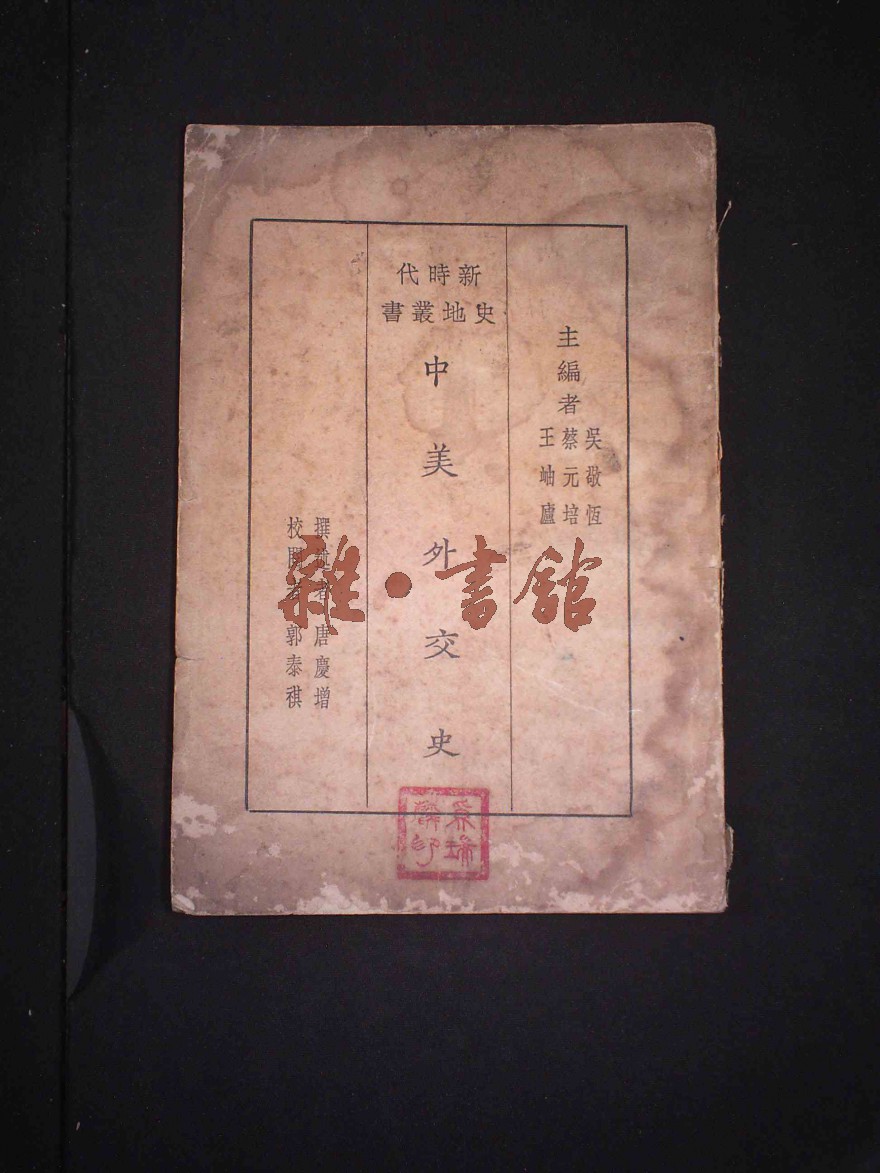 主編者
吳敬恆
蔡元培
王岫廬
新時代
史地叢書
中美外交史
撰述者 唐慶增
校閱者 郭泰祺
雜·書館